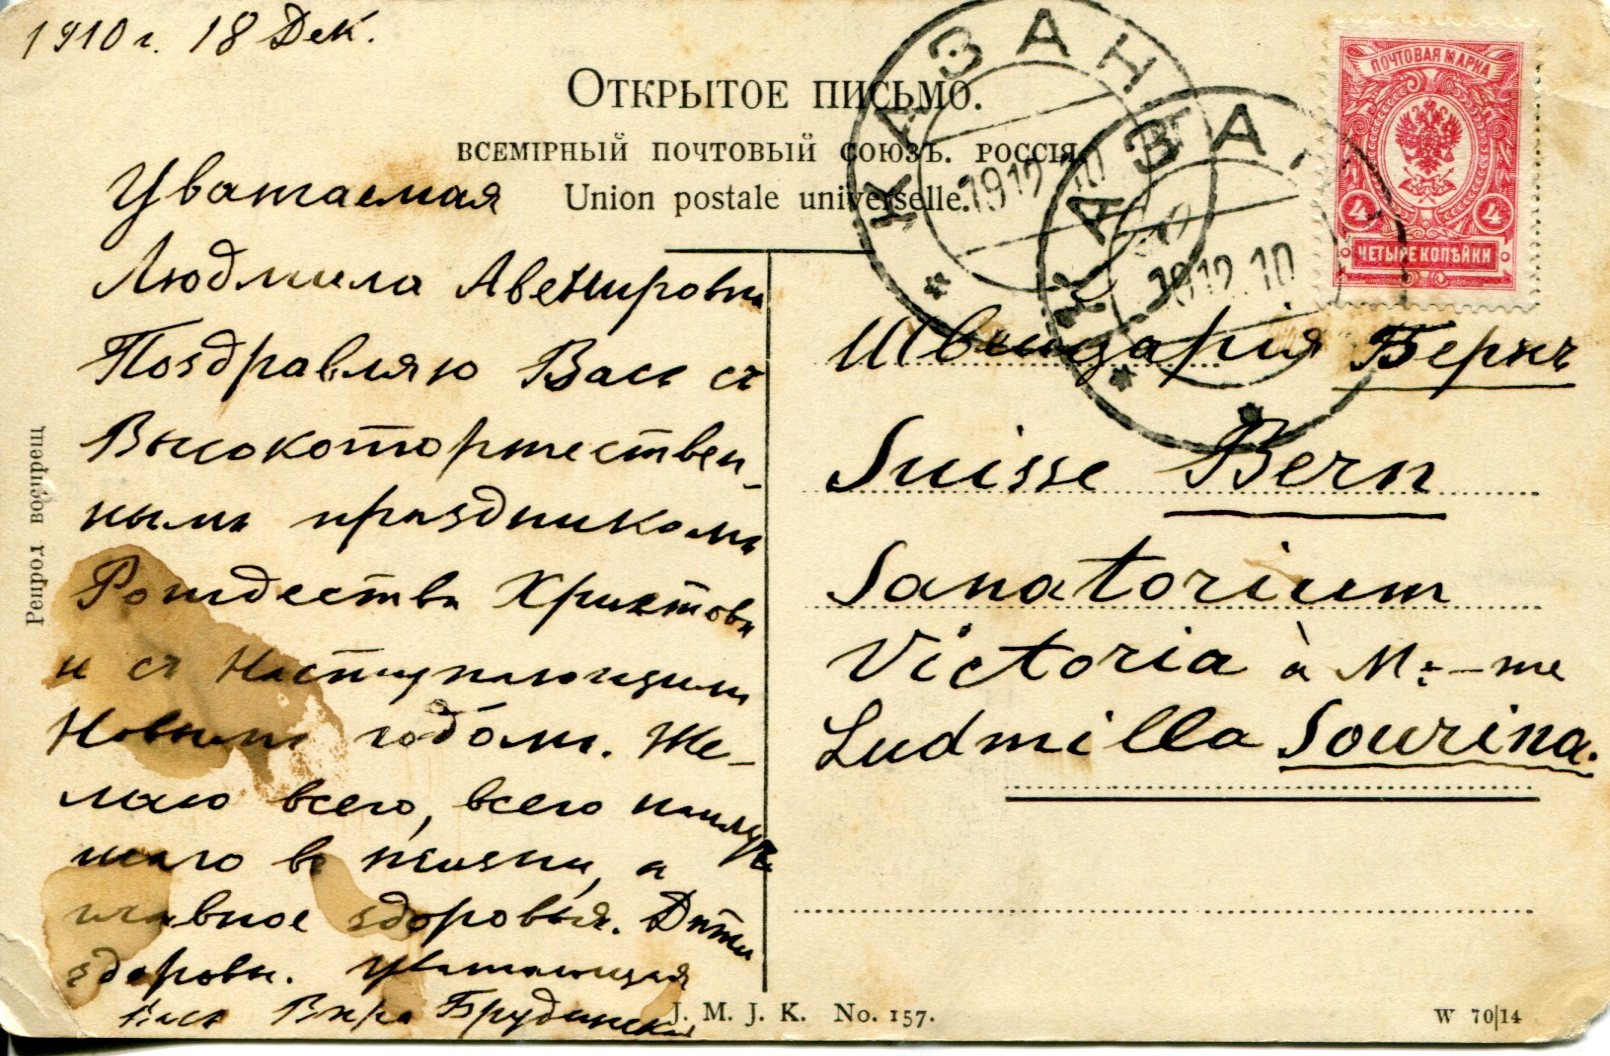 1910 г. 18 Дек.
Открытое письмо.
ВСЕМІРНЫЙ ПОЧТОВЫЙ СОЮЗЪ. РОССІЯ.
Union postale universelle.
ПОЧТОВАЯ МАРКА
4 4
ЧЕТЫРЕ КОПѢЙКИ
КАЗАНЬ
191210
КАЗА
191210
Уважаемая
Людмила Авенировна
Поздравляю Васъ съ
Высокоторжествен-
нымъ праздникомъ
Рождества Христова
и съ Наступающимъ
Новымъ годомъ. Же-
лаю всего, всего наилуч
шаго въ жизни, а
главное здоровья. Дѣти
здоровы. Уважающая
Васъ Вѣра Брудинская
Швейцарія Бернъ
Suisse Bern
Sanatorium
Victoria à M-me
Ludmilla Sourina.
Репрод воспрещ
J. M. J. K. No. 157.
W 70|14